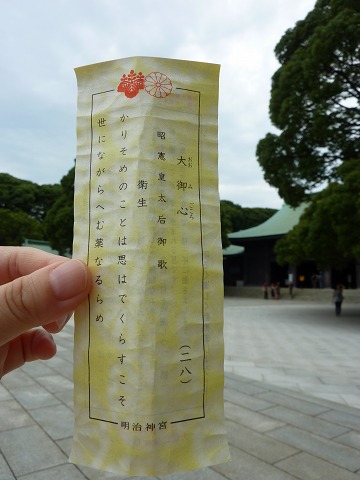 大御心
おおみごころ
(二八)
昭憲皇太后御歌
衛生
かりそめのことは思はでくらすこそ
世にながらへむ薬なるらめ
明治神宮